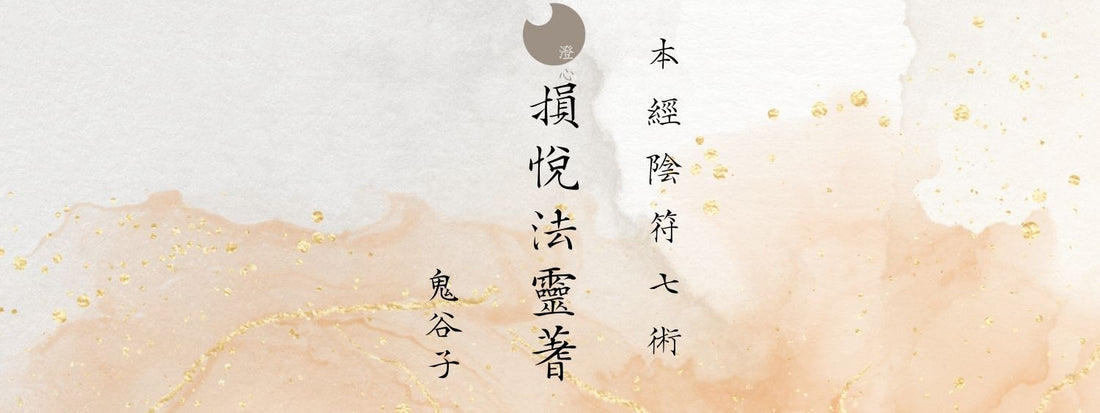 本經陰符七術
澄心
損悅法靈蓍
鬼谷子